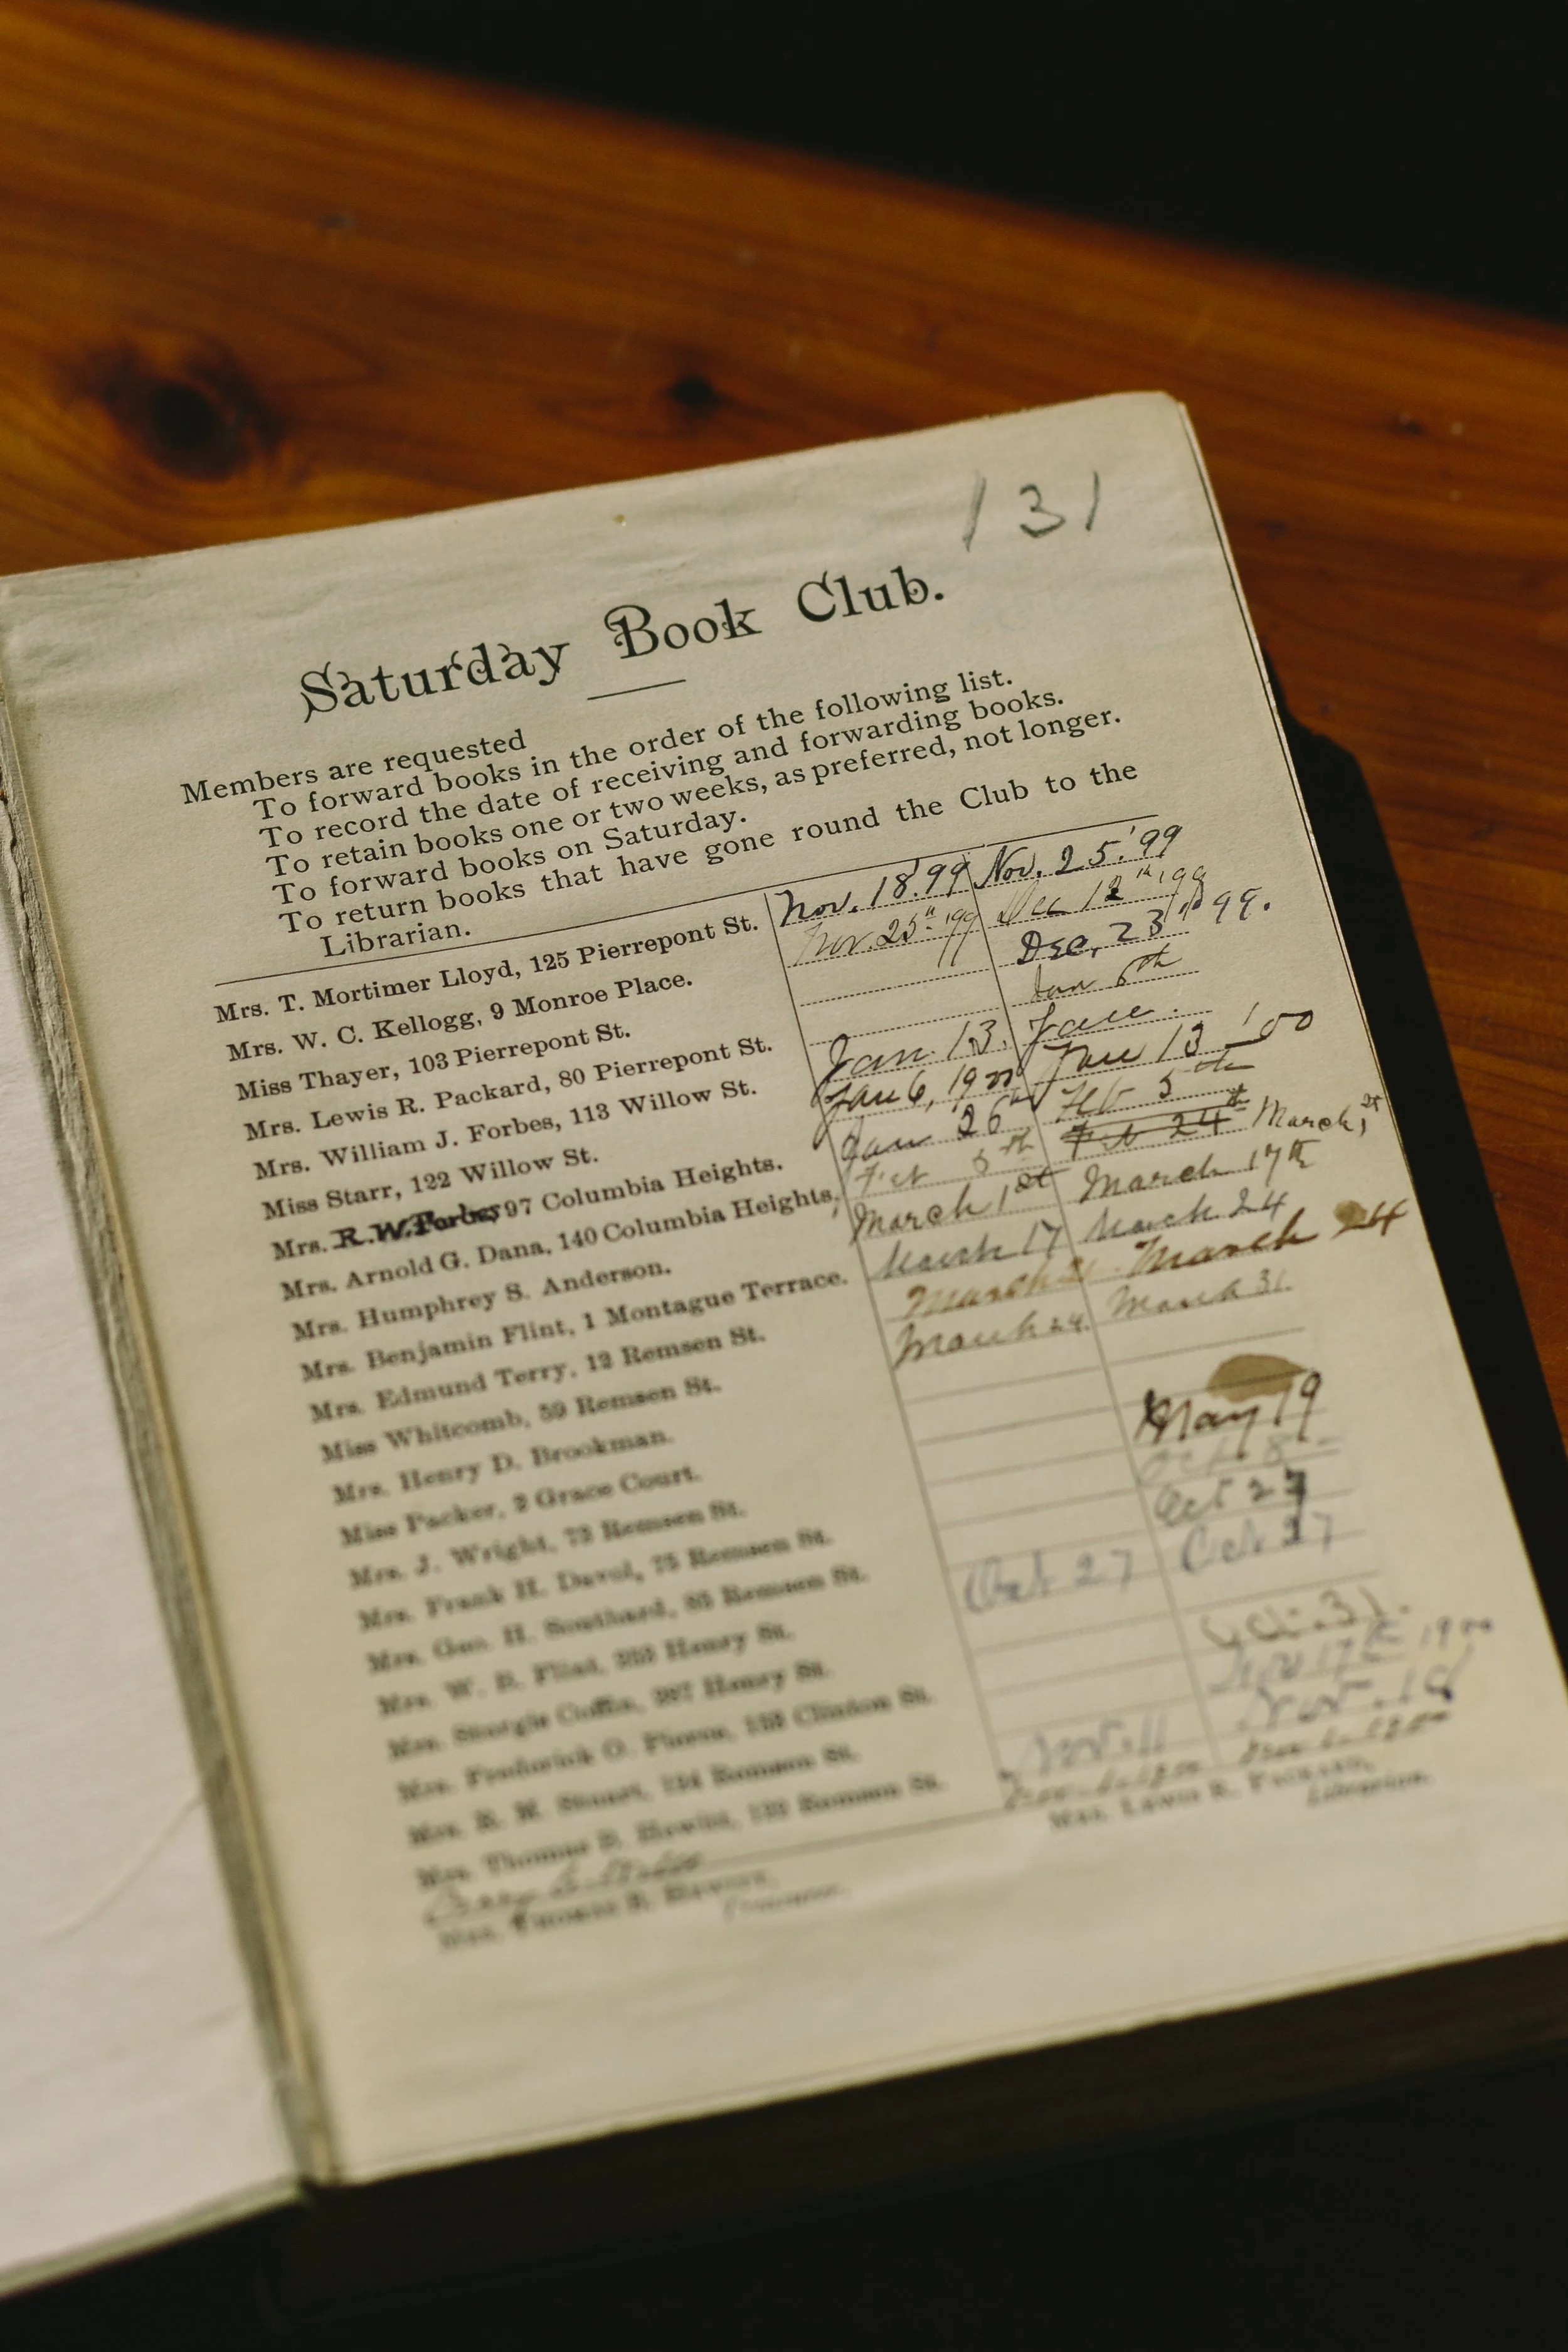 131
Saturday Book Club.
Members are requested
To forward books in the order of the following list.
To record the date of receiving and forwarding books.
To retain books one or two weeks, as preferred, not longer.
To forward books on Saturday.
To return books that have gone round the Club to the
Librarian.
Mrs. T. Mortimer Lloyd, 125 Pierrepont St. Nov. 18.'99 Nov. 25.'99
Mrs. W. C. Kellogg, 9 Monroe Place. Nov. 25th '99 Dec 12th '99
Miss Thayer, 103 Pierrepont St. Dec. 23rd 99.
Mrs. Lewis R. Packard, 80 Pierrepont St. Jan 6th
Mrs. William J. Forbes, 113 Willow St. Jan. 13.
Miss Starr, 122 Willow St. Jan 6, 1900 Jan 13 '00
Mrs. R. W. Forbes, 97 Columbia Heights. Jan 26th Feb 5th
Mrs. Arnold G. Dana, 140 Columbia Heights. 5th Feb 24th March 1st
Mrs. Humphrey S. Anderson. March 1st March 17th
Mrs. Benjamin Flint, 1 Montague Terrace. March 17 March 24
Mrs. Edmund Terry, 12 Remsen St. March March 24
Miss Whitcomb, 59 Remsen St. March 24. March 31.
Mrs. Henry D. Brookman.
Miss Packer, 2 Grace Court.
Mrs. J. Wright, 73 Remsen St. May 19
Mrs. Frank H. Davol, 75 Remsen St. Oct 8
Mrs. Geo. H. Southard, 85 Remsen St. Oct 27
Mrs. W. B. Flint, Henry St. Oct 27 Oct 27
Mrs. Sturgis Coffin, Henry St.
Mrs. Frederick O. Clinton St. Oct. 31.
Mrs. Remsen St. Nov 17th 1900
Mrs. Thomas Remsen St. Nov. 11 Nov. 18
Mrs. Lewis R. Packard,
Librarian.
Mrs. Thomas